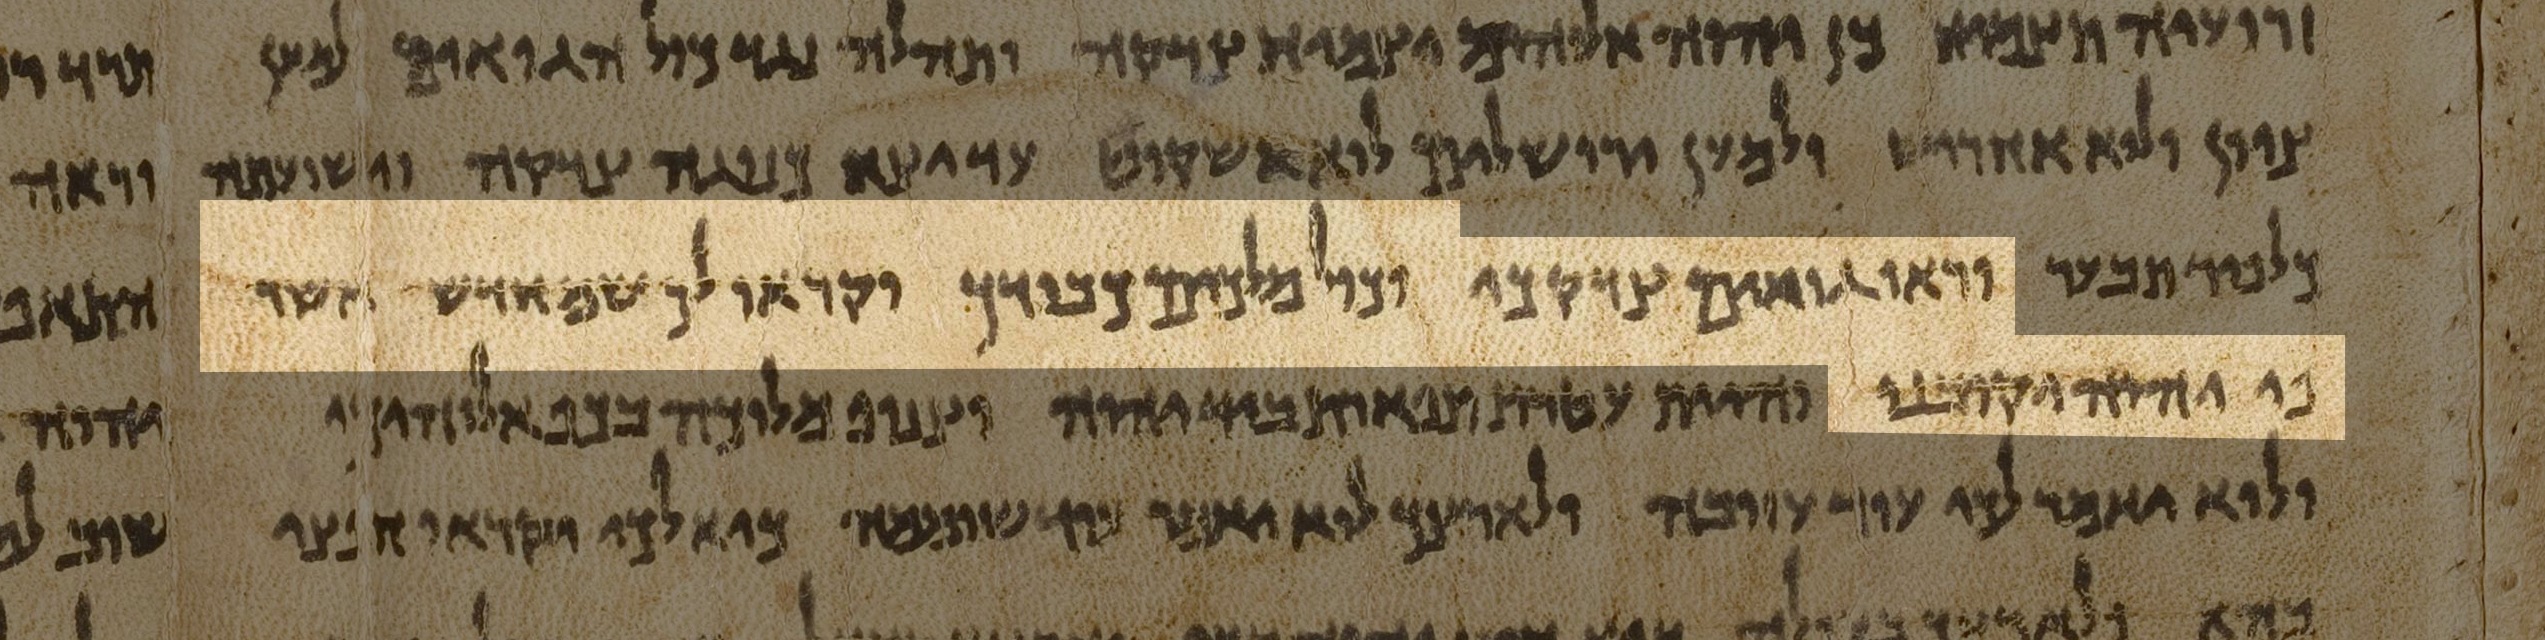 זרועיה תצמיח כן יהוה אלוהים יצמיח צדקה ותהלה נגד כול הגואים למען
ציון ולא אחריש ולמען ירושלים לוא אשקוט עד יצא כנוגה צדקה וישועתה
כלפיד תבער וראו גואים צדקכי וכול מלכים כבודך וקראו לך שם חדש אשר
פי יהוה יקובנו והיית עטרת תפארת ביד יהוה וצניף מלוכה בכף אלוהיך
ולוא יאמר לכי עוד עזובה ולארצך לוא יאמר עוד שוממה כיא לכי יקראו חפצי